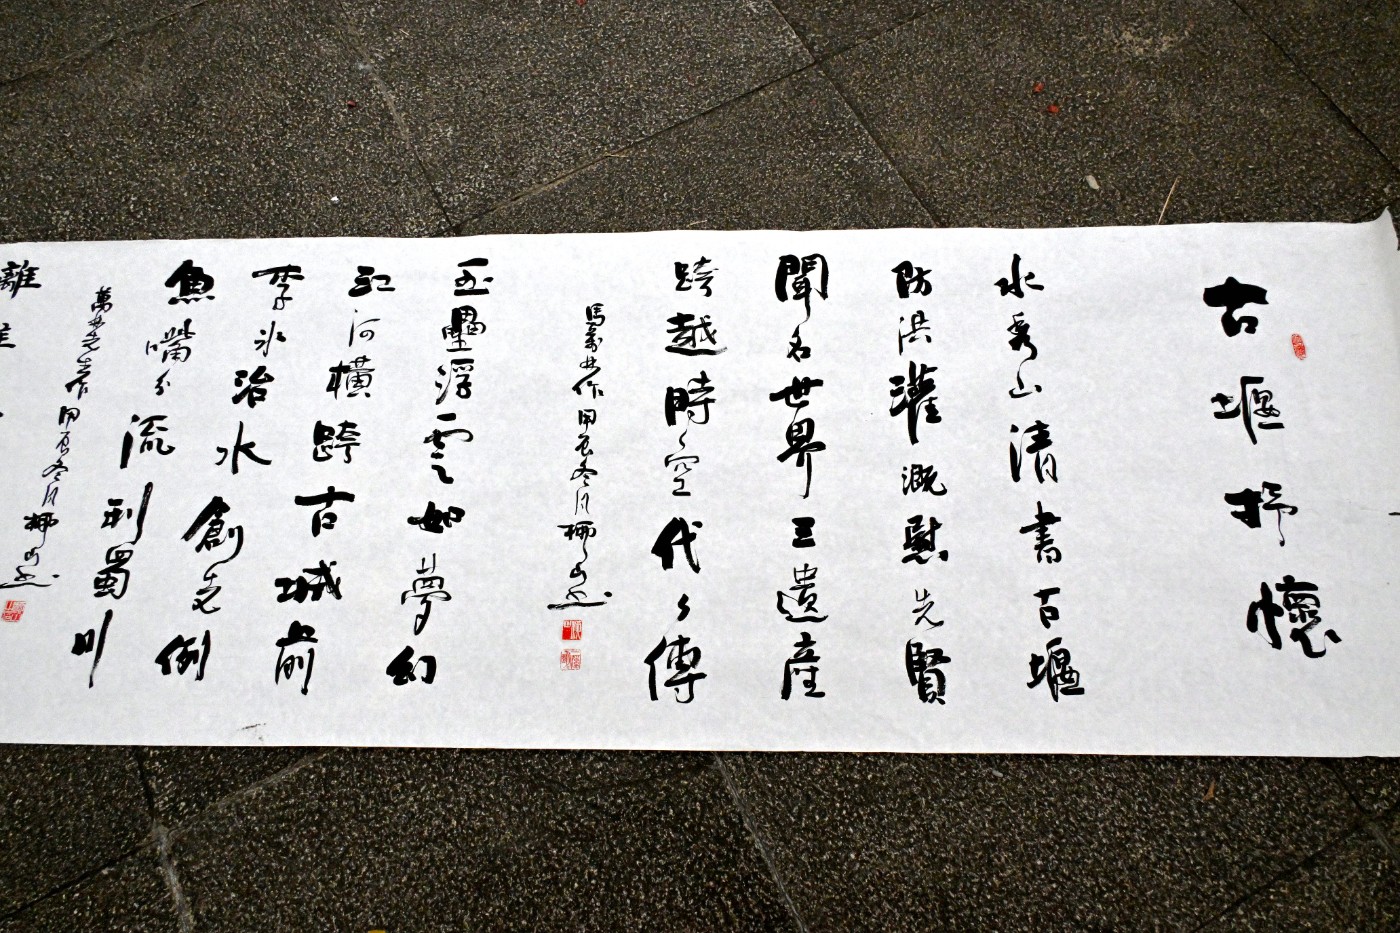 古堰抒懷
水秀山清書古堰
防洪灌溉慰先賢
聞名世界三遺產
跨越時空代代傳
馬萬安作甲辰冬月柳山書
玉壘浮雲如夢幻
江河橫跨古城前
李冰治水創先例
魚嘴分流利蜀川
先生作甲辰冬月
離